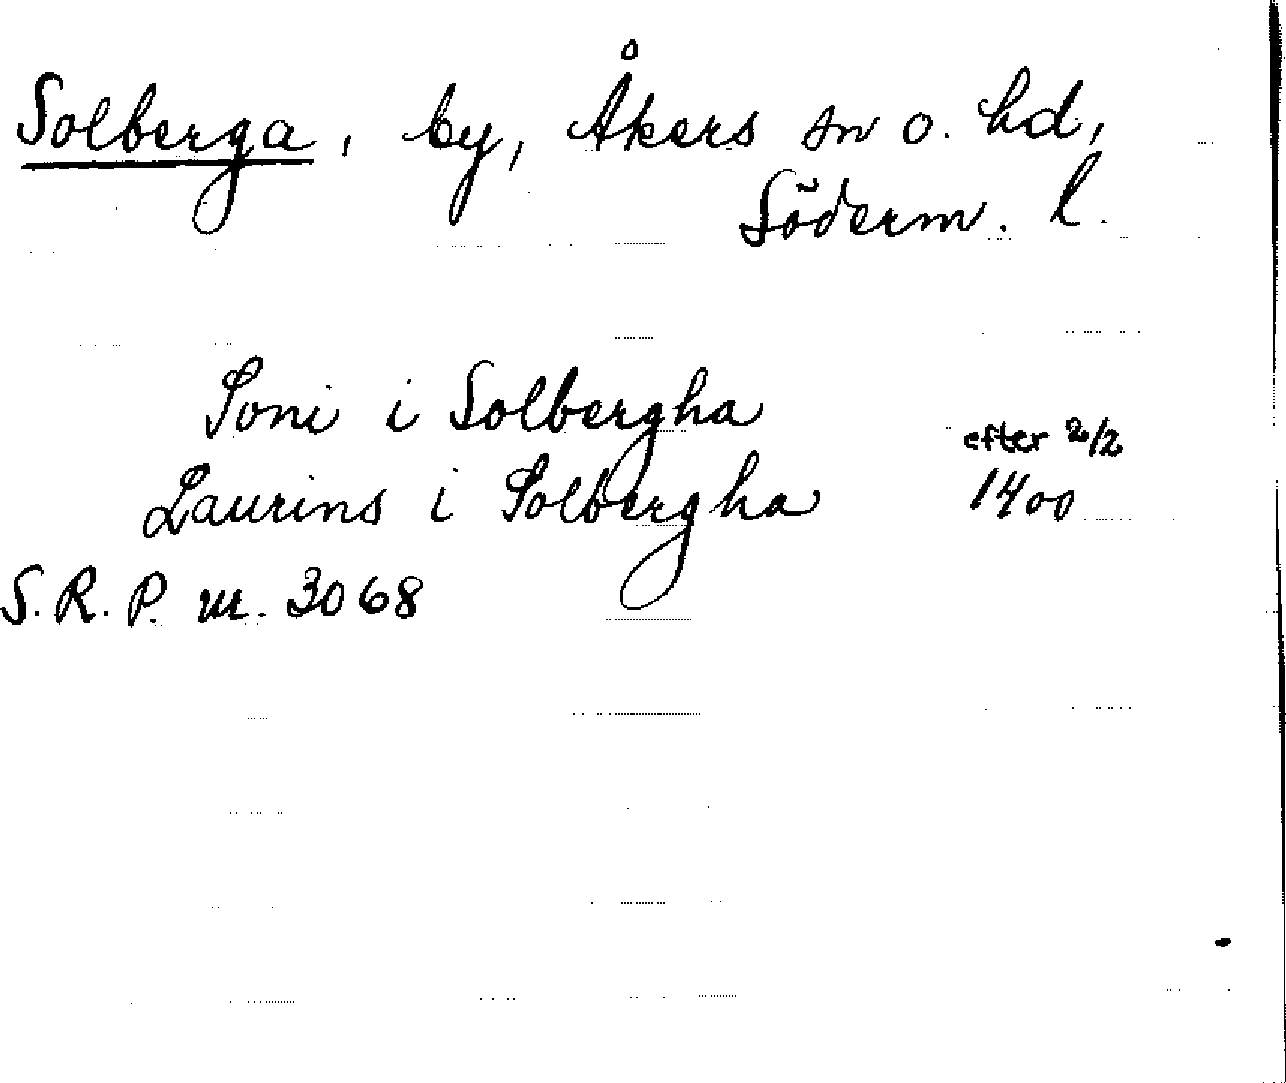 Solberga, by, Åkers sn o. hd,
Söderm. l.
Soni i Solbergha
efter 2/2
Laurins i Solbergha 1400
S.R.P. nr. 3068